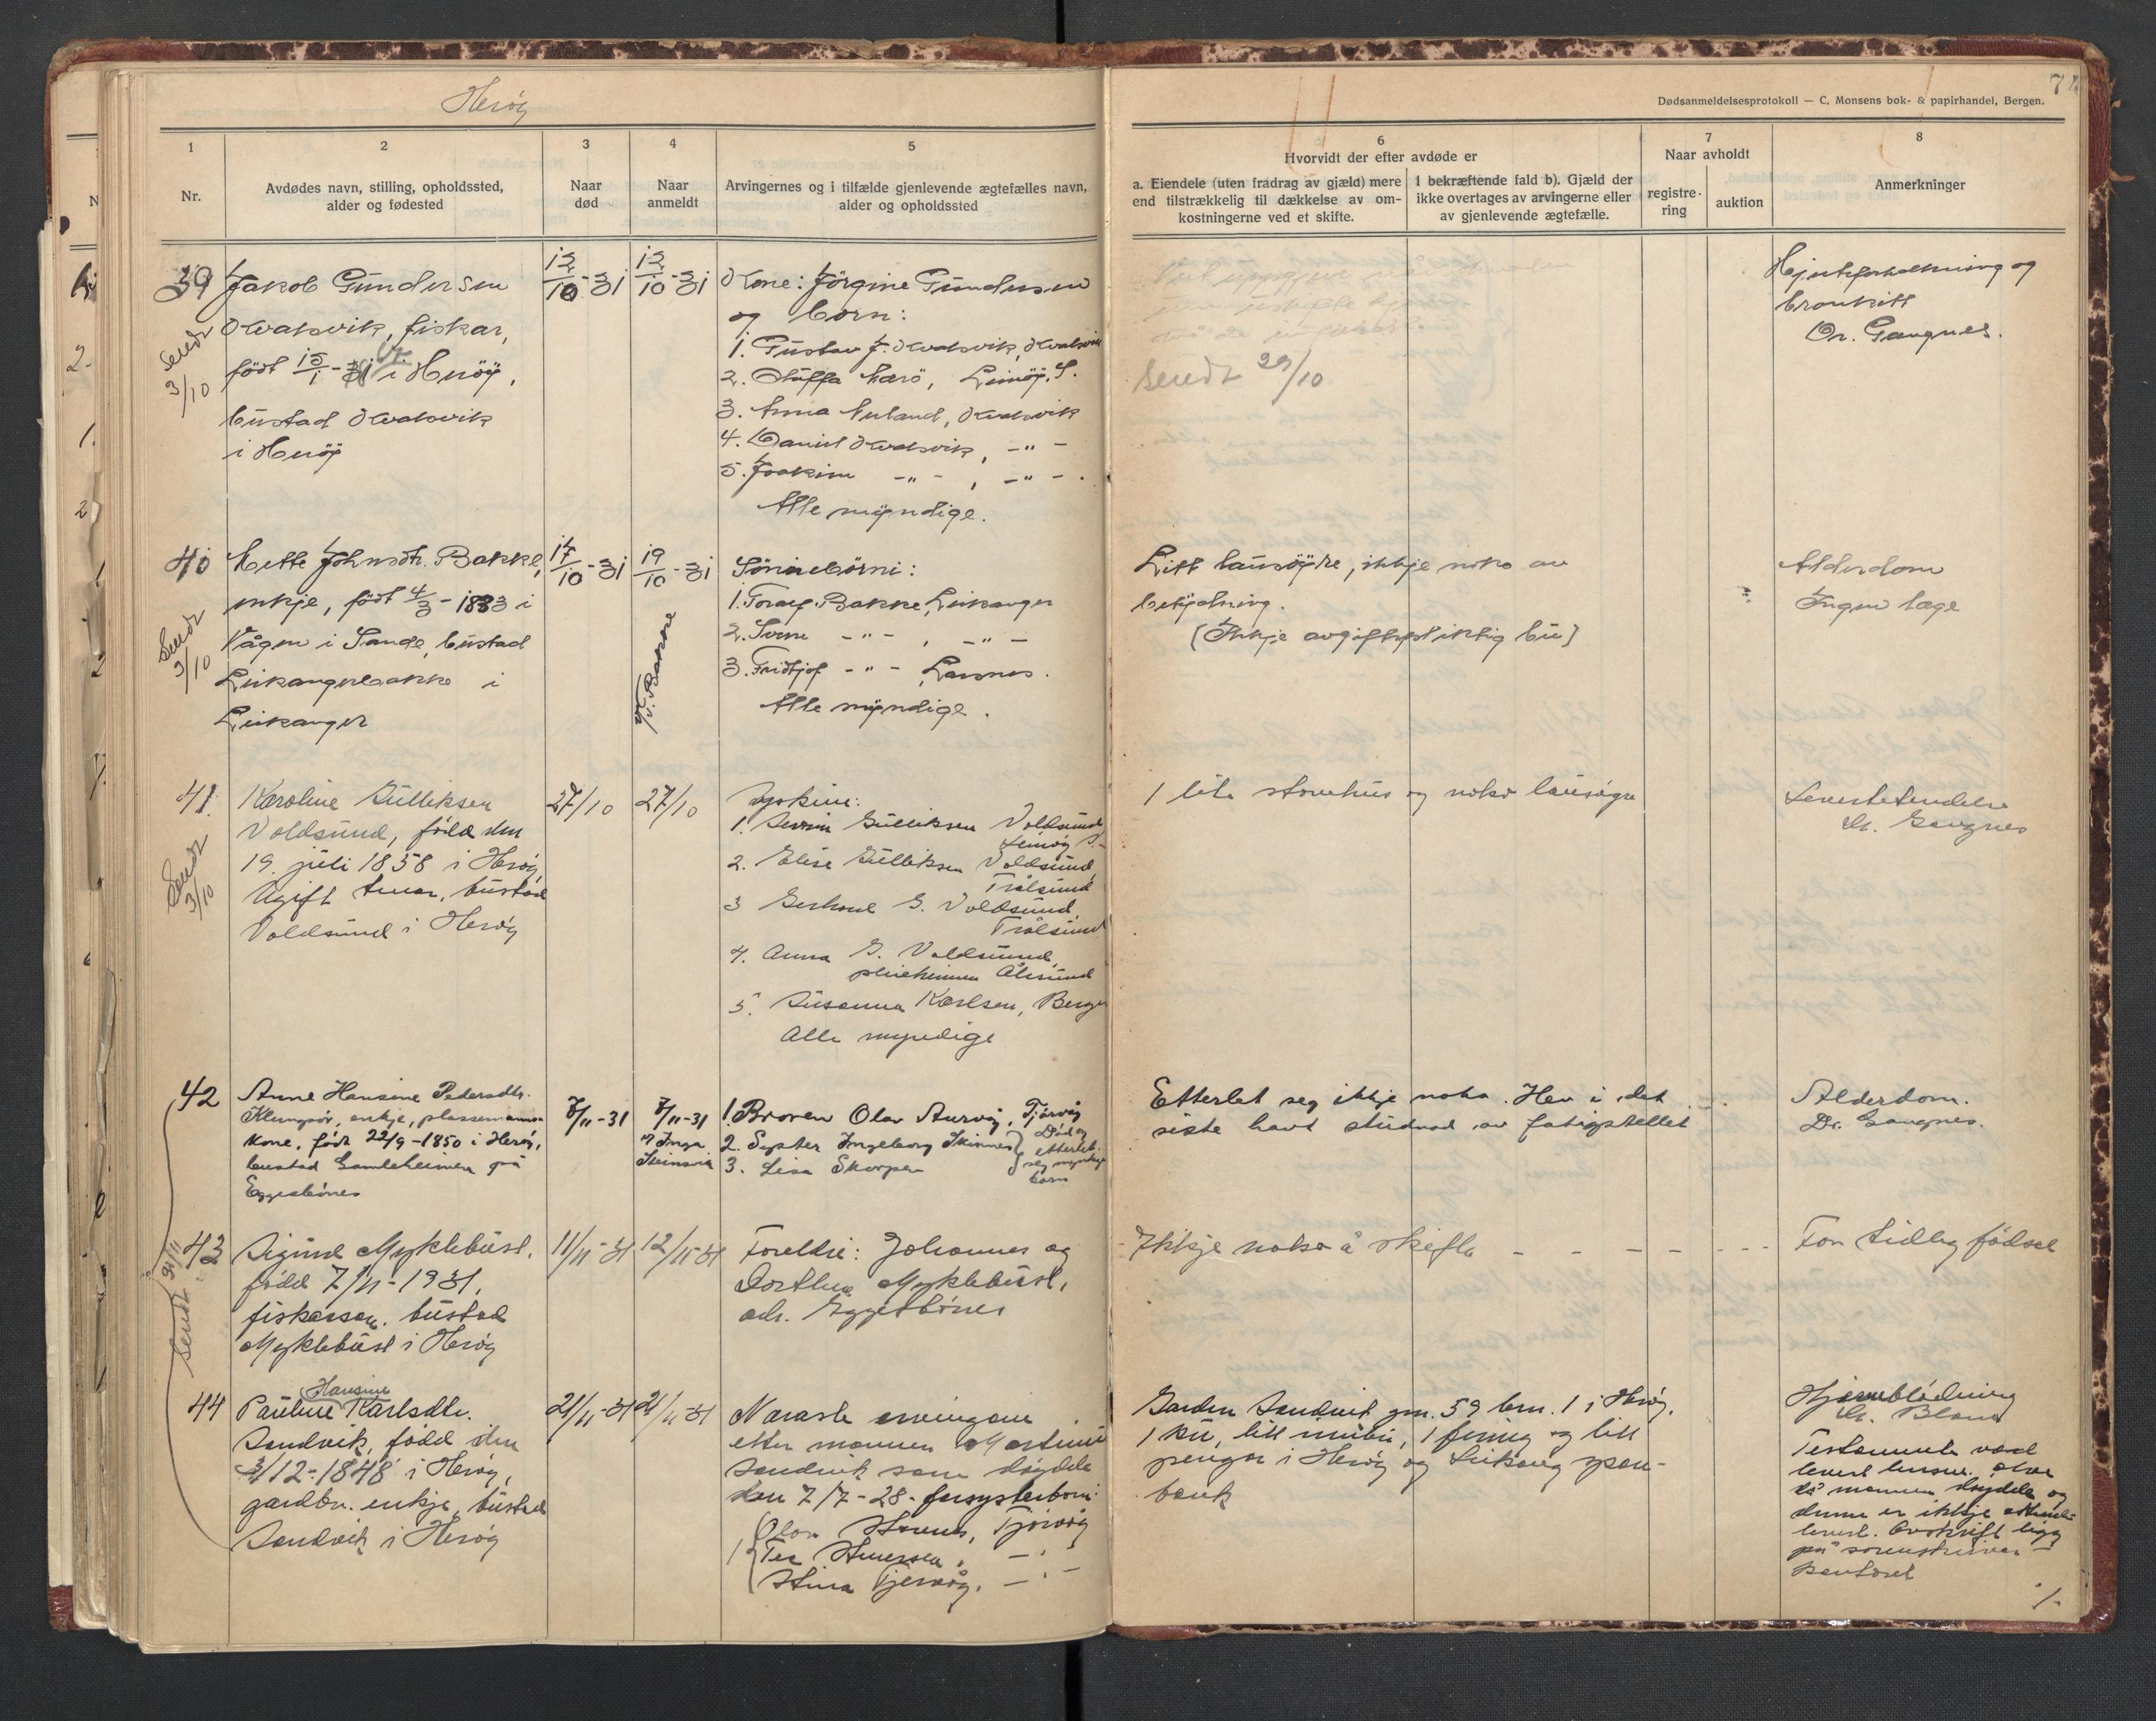 Herøy
74
Dødsanmeldelsesprotokoll — C. Monsens bok- & papirhandel, Bergen.
1
Nr.
2
Avdødes navn, stilling, opholdssted,
alder og fødested
3
Naar
død
4
Naar
anmeldt
5
Arvingernes og i tilfælde gjenlevende ægtefælles navn,
alder og opholdssted
6
Hvorvidt der efter avdøde er
a. Eiendele (uten fradrag av gjæld) mere
end tilstrækkelig til dækkelse av om-
kostningerne ved et skifte.
I bekræftende fald b). Gjæld der
ikke overtages av arvingerne eller
av gjenlevende ægtefælle.
7
Naar avholdt
registre-
ring
auktion
8
Anmerkninger
39
Sendt
3/10
Jakob Gundersen
Kvalsvik, fiskar,
født 15/1 - i Herøy,
bustad Kvalsvik
i Herøy
12/10-31
12/10-31
Kone: Jørgine Gundersen
og born:
1. Gustav J. Kvalsvik, Kvalsvik
2. Leinøy, S.
3. Anna Kvalsvik
4. Daniel Kvalsvik, -"-
5. Joakim -"-, -"-.
Alle myndige.
Sendt 29/10
Hjerteforkalkning og
bronkitt
Dr. Gangnes.
40
Sendt
3/10
Mette Johnsdt. Bakke,
enkje, født 4/3-1833 i
Vågen i Sande, bustad
Leikangerbakke i
Leikanger
17/10-31
19/10-31
Bakke
Sønneborni:
1. Toralf Bakke, Leikanger
2. Sverre -"-, -"-
3. Fridtjof -"-, Larsnes.
Alle myndige.
Litt lausøyre, ikkje noko av
betydning.
(Ikkje avgiftspliktig bu)
Alderdom
Ingen læge
41
Sendt
3/10
Karoline Gulliksen
Voldsund, född den
19. juli 1858 i Herøy,
Ugift tenar, bustad
Voldsund i Herøy
27/10
27/10
Syskin:
1. Severin Gulliksen Voldsund
Leinøy S.
2. Elise Gulliksen Voldsund,
Trålsund
3 Gerhard G. Voldsund,
Trålsund
4. Anna G. Voldsund,
pleieheimen Ålesund
5. Susanna Karlsen, Bergen
Alle myndige
1 lite stovehus og noko lausøyre
Dr. Gangnes
42
Anne Hansine Pedersdtr.
Klungsør, enkje, plassemanns-
kone, født 22/9-1850 i Herøy,
bustad Gamleheimen på
Eggesbønes
7/11-31
7/11-31
v/ Inga
Steinsvik
1. Broren Olav Aurvåg, Tjørvåg
2. Syster Ingeborg Skinnes
3. Lisa Skorpen
Død og
etterlet
seg myndige
born
Etterlet seg ikkje noko. Hev i det
siste havt studnad av fatigstellet
Alderdom.
Dr. Gangnes.
Sendt
43
Sigurd Myklebust,
född 7/11-1931,
fiskarson. bustad
Myklebust i Herøy
11/11-31
12/11-31
Foreldre: Johannes og
Dorthea Myklebust,
adr. Eggesbønes
Ikkje noko å skifta - - - - - -
For tidleg födsel
44
Hansine
Pauline Karlsdtr.
Sandvik, född den
3/12-1848 i Herøy,
gardbr. enkje, bustad
Sandvik i Herøy
21/11-31
21/11-31
Næraste ervingane
etter mannen Martinus
Sandvik som døydde
den 7/7-28. fersysterborn:
1 Olav Tjørvåg
-"-
Stina Tjervåg. -"-
Garden Sandvik gnr. 59 brn. 1 i Herøy,
1 ku, litt innbu, 1 færing og litt
pengar i Herøy og Leikang sparebank
Hjerneblødning
Dr.
Testamente vart
levert lensm. Abo
då mannen døydde og
denne er ikkje attende
levert. Avskrift ligg
på sorenskrivar-
kontoret
1.